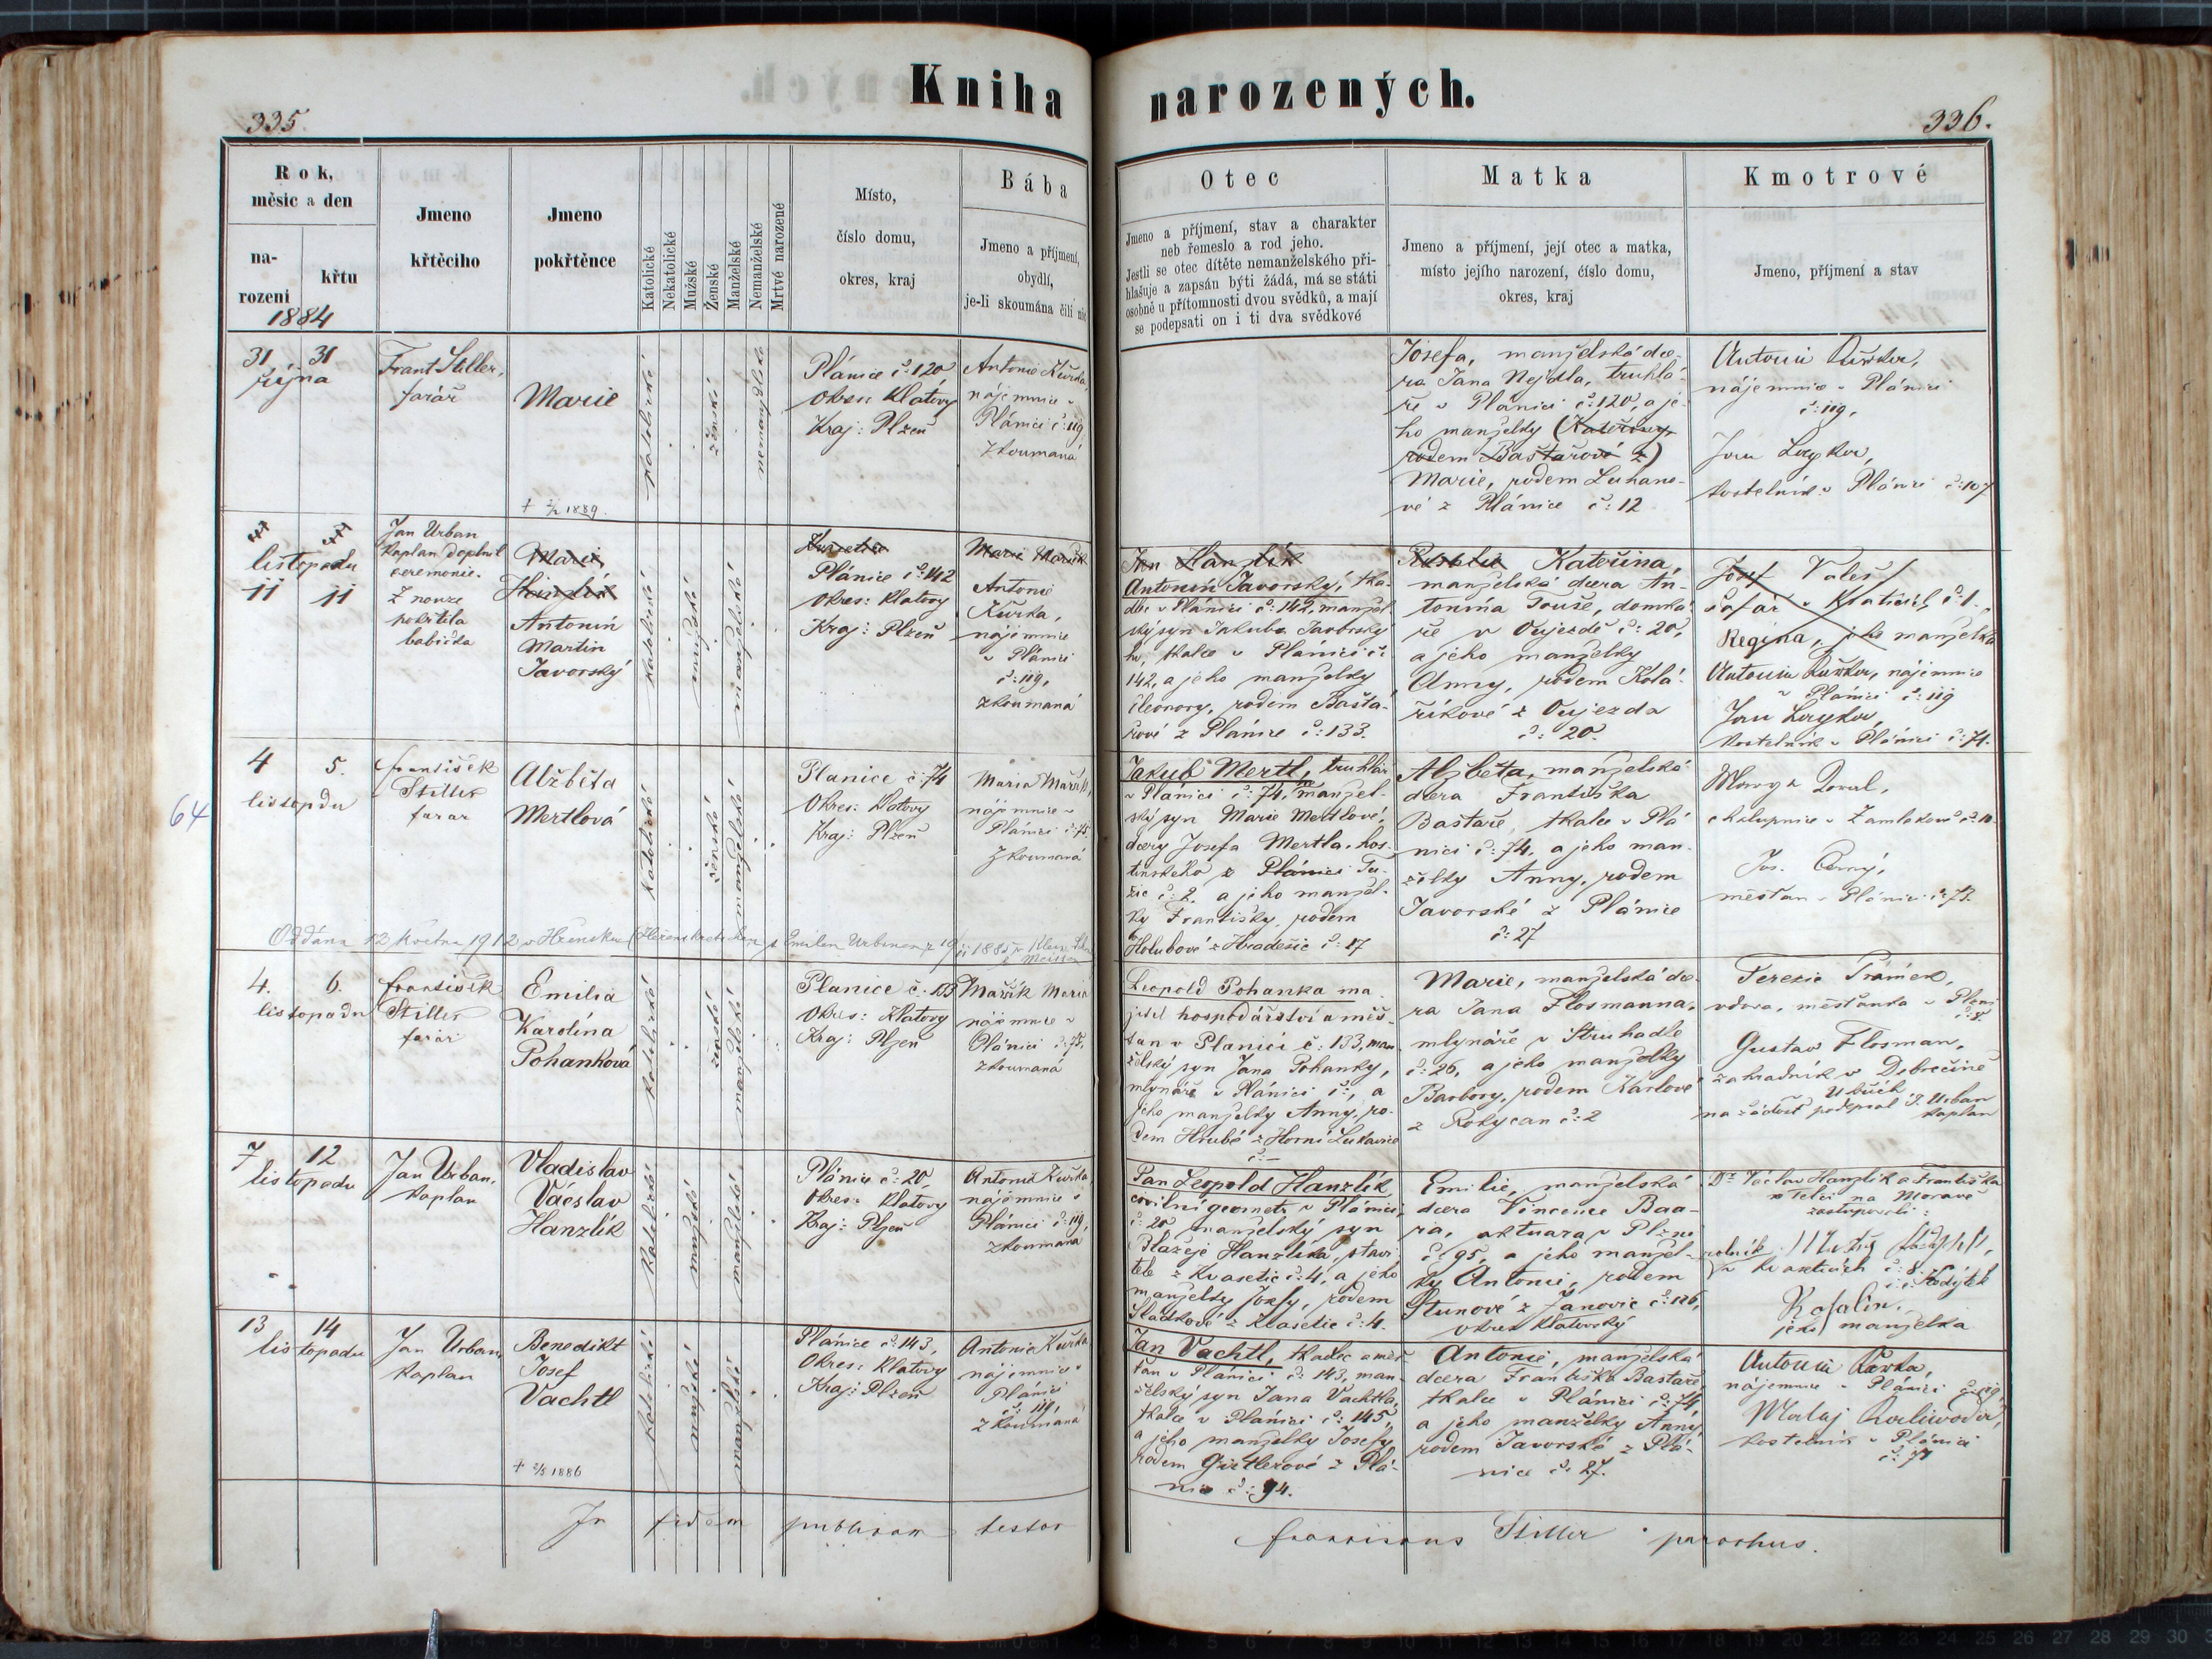 Kniha narozených.
335.
336.
Rok,
měsíc a den
na-
rozeni
křtu
1884
Jmeno
křtěciho
Jmeno
pokřtěnce
Katolické
Nekatolické
Mužské
Ženské
Manželské
Nemanželské
Mrtvé narozené
Místo,
číslo domu,
okres, kraj
Bába
Jmeno a příjmení,
obydlí,
je-li skoumána čili nic
Otec
Jmeno a příjmení, stav a charakter
neb řemeslo a rod jeho.
Jestli se otec dítěte nemanželského při-
hlašuje a zapsán býti žádá, má se státi
osobně u přítomnosti dvou svědků, a mají
se podepsati on i ti dva svědkové
Matka
Jmeno a příjmení, její otec a matka,
místo jejího narození, číslo domu,
okres, kraj
Kmotrové
Jmeno, příjmení a stav
31 31
října
Frant Stiller,
farář
Marie
† 2/2 1889.
katolické
ženské
nemanželské
Plánice č: 120
okres Klatovy
Kraj: Plzeň
Antonie Kůrka,
nájemnice v
Plánici č: 119
zkoumaná
Josefa, manželská dce-
ra Jana Nejdla, truhlá-
ře v Plánici č: 120, a je-
ho manželky (Kateřiny,
rodem Baštařové z)
Marie, rodem Luhano-
vé z Plánice č: 12
Antonie Kůrka,
nájemnice v Plánici
č: 119,
Jan
kostelník v Plánici č: 107
listopadu
11 11
Jan Urban
kaplan doplnil
ceremonie.
Z nouze
pokřtila
babička
Marie
Hanzlík
Antonín
Martin
Javorský
katolické
mužské
manželské
Plánice č: 142
Okres: Klatovy
Kraj: Plzeň
Marie Mařík
Antonie
Kůrka,
nájemnice
v Plánici
č: 119,
zkoumaná
Jan Hanzlík
Antonín Javorský, tka-
dlec v Plánici č: 142, manžel-
ský syn Jakuba Javorské-
ho, tkalce v Plánici č:
142, a jeho manželky
Eleonory, rodem Bašta-
řové z Plánice č: 133.
Rosalie Kateřina,
manželská dcera An-
tonína Touše, domká-
ře v Oujezdě č: 20,
a jeho manželky
Anny, rodem Kolá-
říkové z Oujezda
č: 20.
Josef Valeš
šafář v Kvaseticích č: 1.
Regina, jeho manželka
Antonie Kůrka, nájemnice
v Plánici č: 119
Jan
kostelník v Plánici č: 71.
64
4 5.
listopadu
František
Stiller
farar
Alžběta
Mertlová
katolické
ženské
manželské
Planice č: 74
Okres: Klatovy
Kraj: Plzeň
Maria Mařík,
nájemnice v
Plánici č: 75
Zkoumaná
Jakub Mertl, truhlář
v Plánici č: 74, manžel-
ský syn Marie Mertlové,
dcery Josefa Mertla, hos-
tinského z Plánici Tu-
žic č: 2, a jeho manžel-
ky Františky, rodem
Holubové z Hradešic č: 17
Alžběta, manželská
dcera Františka
Baštaře, tkalce v Plá-
nici č: 74, a jeho man-
želky Anny, rodem
Javorské z Plánice
č: 27
chalupnice v Zamlekově č: 10
Jos. Černý,
měšťan v Plánici č: 73.
Oddána 12 května 1912 v Hřensku
4. 6.
listopadu
František
Stiller
farář
Emilia
Karolína
Pohanková
katolické
ženské
manželské
Planice č. 133
Okres: Klatovy
Kraj: Plzeň
Mařík Marie
nájemnice v
Plánici č: 75,
zkoumaná
Leopold Pohanka ma-
jitel hospodářství a měš-
ťan v Planici č: 133, man-
želský syn Jana Pohanky,
mlynáře v Plánici č:, a
jeho manželky Anny, ro-
dem Hrubé z Horní Lukavice
č: –
Marie, manželská dce-
ra Jana Flosmanna,
mlynáře v Struhadle
č: 26, a jeho manželky
Barbory, rodem Karlové
z Rokycan č: 2
Terezie Trámek,
vdova, měšťanka v Plzni
č: 8.
Gustav Flosman,
zahradník v Dobročíně
v Uhřích
na žádost podepsal J. Urban
kaplan
7 12
listopadu
Jan Urban,
kaplan
Vladislav
Václav
Hanzlík
katolické
mužské
manželské
Plánice č: 20,
Okres: Klatovy
Kraj: Plzeň
Antonie Kůrka,
nájemnice v
Plánici č: 119,
zkoumaná
Pan Leopold Hanzlík
civilní geometr v Plánici,
č: 20 manželský syn
Blažeje Hanzlíka, stavi-
tele z Kvasetic č: 4, a jeho
manželky Josefy, rodem
Sládkové z Kvasetic č: 4.
Emilie, manželská
dcera Vincence Baa-
ra, aktuara v Plzni
č: 95, a jeho manžel-
ky Antonie, rodem
Štunové z Janovic č: 126,
okres Klatovský
Dr Václav Hanzlík a Františka
v Telči na Moravě
zastupovali:
rolník
v Kvaseticích č: 8.
Rosalie,
jeho manželka
13 14
listopadu
Jan Urban,
kaplan
Benedikt
Josef
Vachtl
† 2/5 1886
katolické
mužské
manželské
Plánice č: 143,
Okres: Klatovy
Kraj: Plzeň
Antonie Kůrka
nájemnice v
Plánici
č: 119,
zkoumaná
Jan Vachtl, tkadlec a měš-
ťan v Plánici č: 143, man-
želský syn Jana Vachtla,
tkalce v Plánici č: 145,
a jeho manželky Josefy
rodem Girtlerové z Plá-
nice č: 94.
Antonie, manželská
dcera Františka Baštaře,
tkalce v Plánici č: 74,
a jeho manželky Anny
rodem Javorské z Plá-
nice č: 27.
Antonie Kůrka,
nájemnice v Plánici č: 119,
Mataj Kaliwoda,
kostelník v Plánici
č: 97
In fidem publicam testor
Franciscus Stiller parochus.